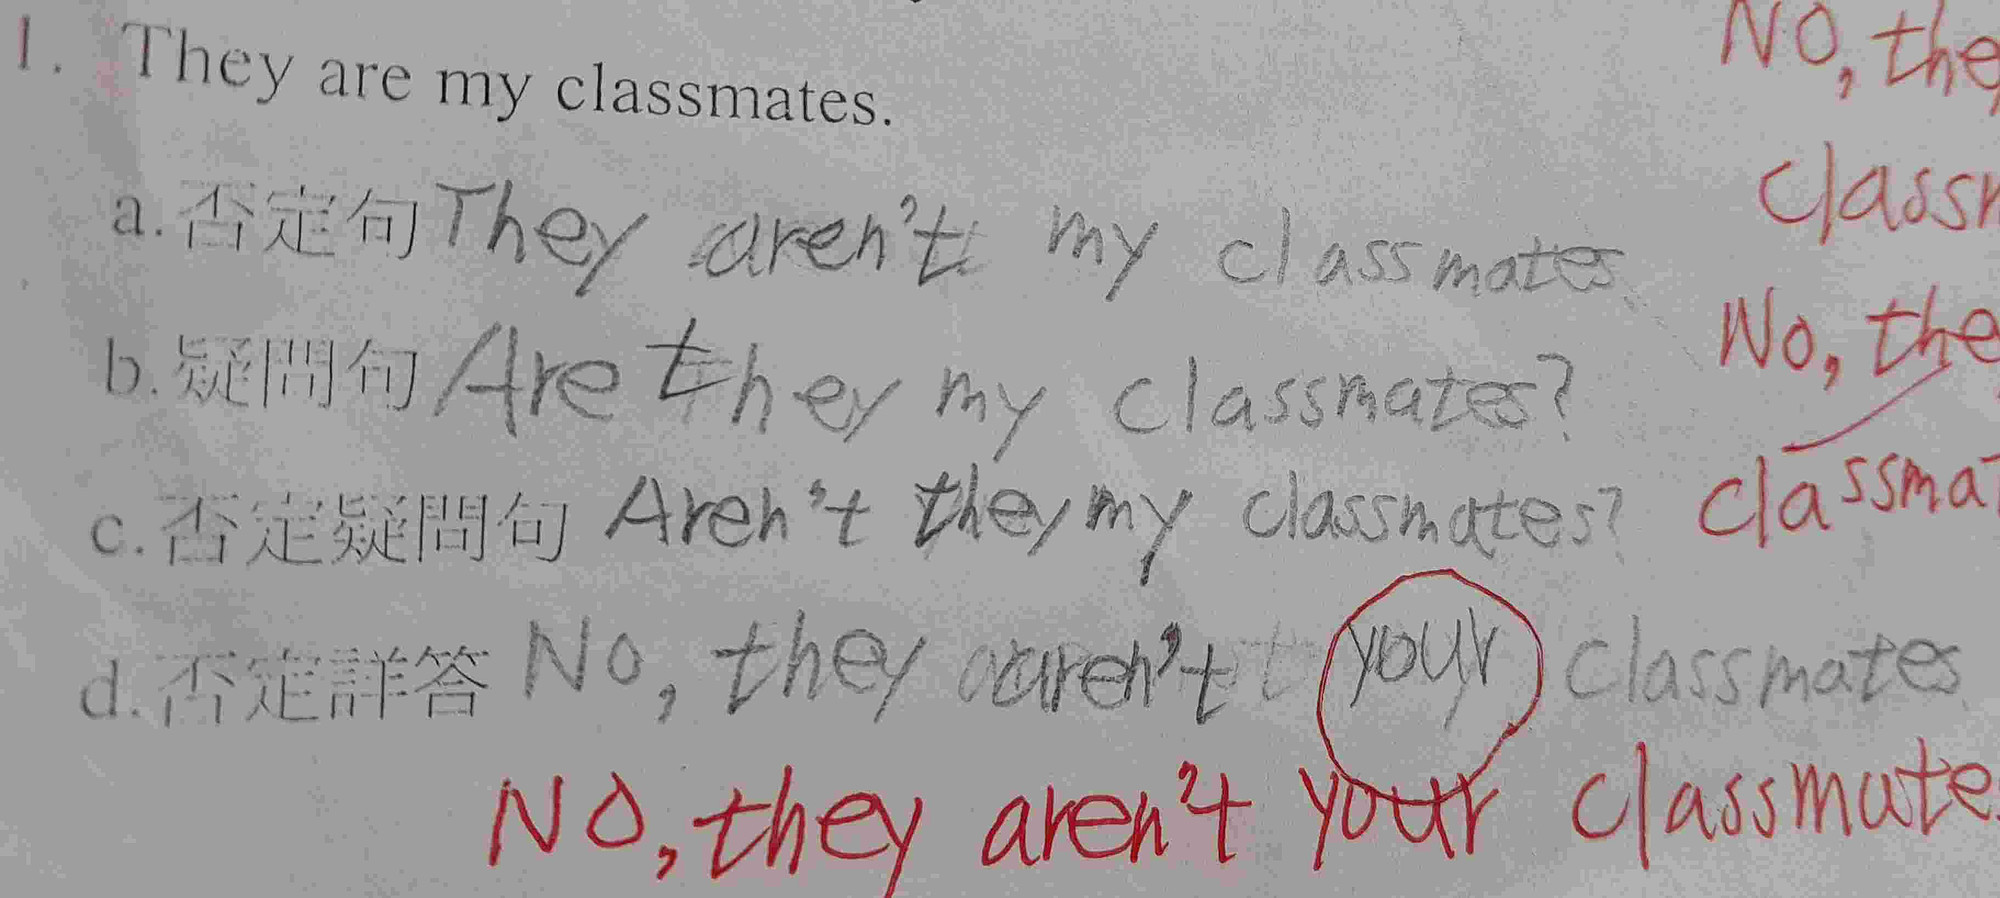 1. They are my classmates.
a. 否定句 They aren't my classmates.
b. 疑問句 Are they my classmates?
c. 否定疑問句 Aren't they my classmates?
d. 否定詳答 No, they aren't your classmates.
No, they aren't your classmate
NO, the
classm
No, the
classmat